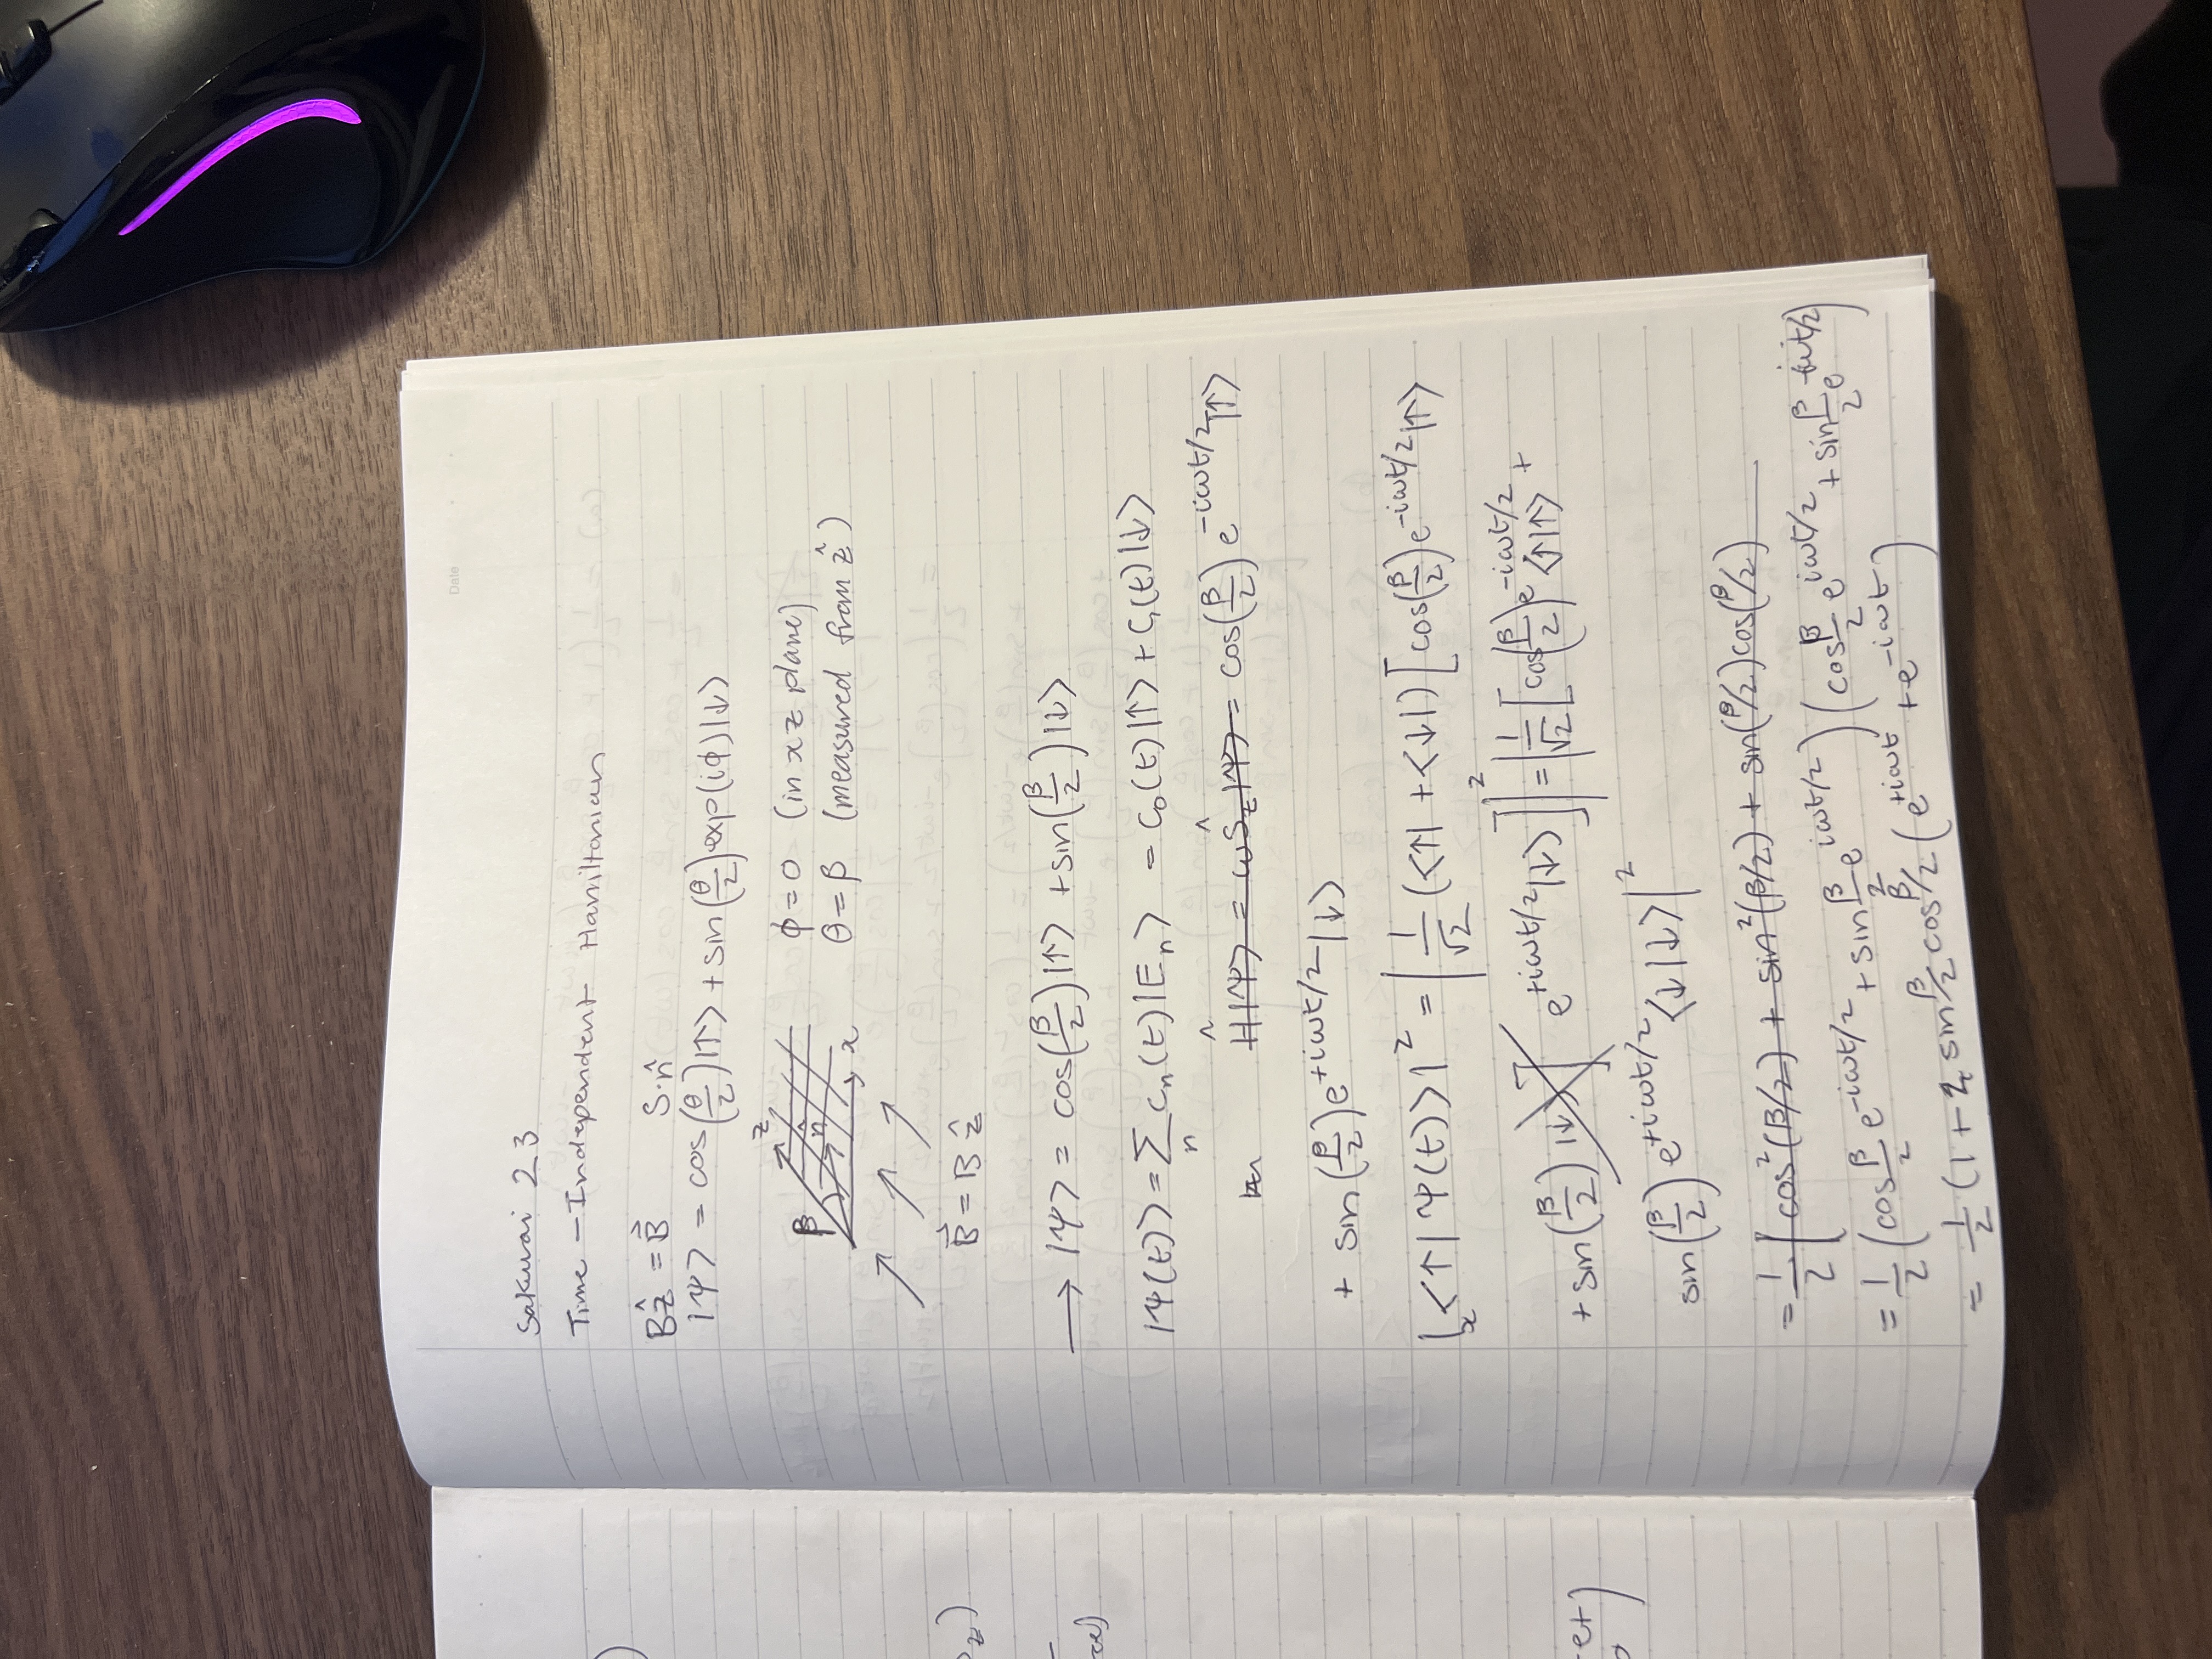 Date
Sakurai 2.3
Time - Independent Hamiltonian
Bẑ = B⃗   S·n̂
|ψ⟩ = cos(θ/2)|↑⟩ + sin(θ/2)exp(iϕ)|↓⟩
z
β n̂ x
ϕ = 0 (in xz plane)
θ = β (measured from ẑ)
B⃗ = B ẑ
→ |ψ⟩ = cos(β/2)|↑⟩ + sin(β/2)|↓⟩
|ψ(t)⟩ = Σ_n c_n(t)|E_n⟩ = c₀(t)|↑⟩ + c₁(t)|↓⟩
Ĥ|ψ⟩ = ωŜ_z|ψ⟩ = cos(β/2) e^{-iωt/2}|↑⟩
+ sin(β/2) e^{+iωt/2}|↓⟩
|ₓ⟨↑|ψ(t)⟩|² = |1/√2 (⟨↑| + ⟨↓|) [cos(β/2) e^{-iωt/2}|↑⟩
+ sin(β/2) |↓⟩] e^{+iωt/2}|↓⟩]|² = |1/√2 [cos(β/2) e^{-iωt/2} ⟨↑|↑⟩ +
sin(β/2) e^{+iωt/2} ⟨↓|↓⟩|²
= 1/2 | cos²(β/2) + sin²(β/2) + sin(β/2)cos(β/2)
= 1/2 (cos β/2 e^{-iωt/2} + sin β/2 e^{iωt/2}) (cos β/2 e^{iωt/2} + sin β/2 e^{-iωt/2})
= 1/2 (1 + sin β/2 cos β/2 (e^{+iωt} + e^{-iωt})